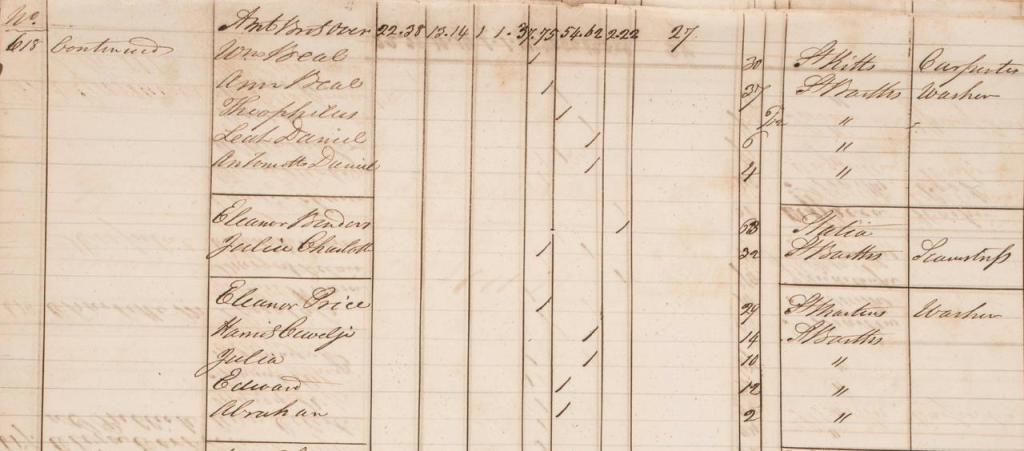 No.
618 Continued Amt Brot Over 22.38 13.14 1 1. 37.75 54.62 2.22 27
Wm Beal 1 30 St Kitts Carpenter
Ann Beal 1 37 St Barths Washer
Theophilus 1 "
Leah Daniel 1 6 "
Antonette Daniel 1 4 "
Eleanor 1 53 Statia
Julia Charlotte 1 32 St Barths Seamstress
Eleanor Price 1 29 St Martins Washer
1 14 St Barths
Julia 1 10 "
Edward 1 12 "
Abraham 1 2 "